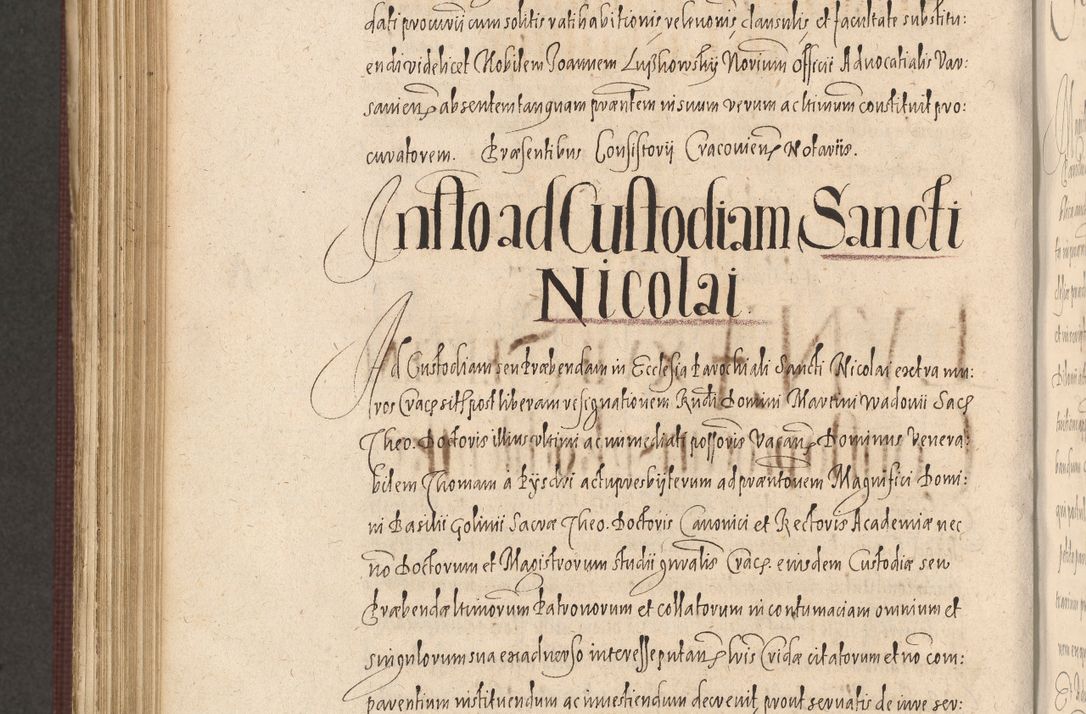 dati procurii cum solitis ratihabitionis relevonis clausulis et facultate substitu:
endi videlicet Nobilem Joannem Lupkowskij Notrium Officii Advocatialis Var:
saviens absentem tanquam praentem in suum verum ac ltimum constituit pro:
curatorem. Praesentibus Consistorij Cracovien Notariis.
Insto ad Custodiam Sancti
Nicolai.
Ad Custodiam seu Praebendam in Ecclesia Parochiali Sancti Nicolai extra mu:
ros Crac sit post liberam resignationem Rndi Domini Martini Wadovii Sac
Theo. Doctoris illius ultimi ac immediati possoris Vacan Dominus Venera:
bilem Thomam a actu presbyterum ad praentonem Magnifici Domi:
ni Basilii Golinii Sacrae Theo. Doctoris Canonici et Rectoris Academiae nec
no Doctorum et Magistrorum studii gnralis Crac. eiusdem Custodiae seu
Praebendae ltimorum Patronorum et collatorum in contumaciam omnium et
singulorum sua exadverso interesse putan lris Cridae citatorum et no com:
parentium instituendum ac investiendum decrevit, prout servatis de iure ser: